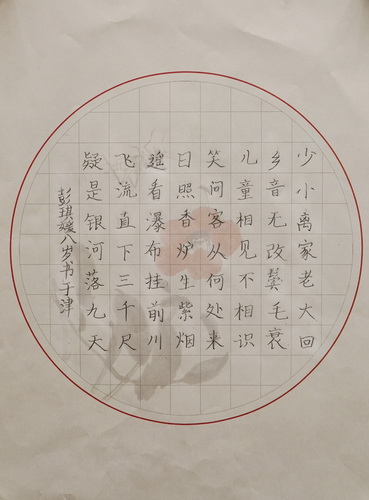 少小离家老大回
乡音无改鬓毛衰
儿童相见不相识
笑问客从何处来
日照香炉生紫烟
遥看瀑布挂前川
飞流直下三千尺
疑是银河落九天
彭琪媛八岁书于津